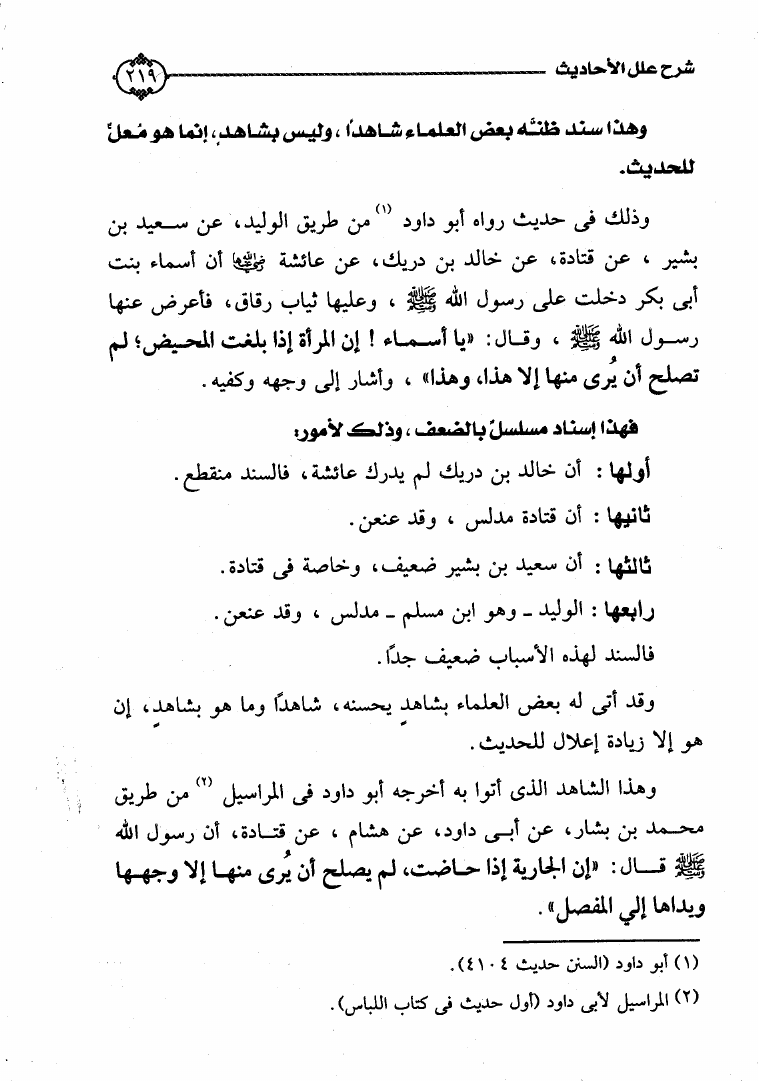 شرح علل الأحاديث ٢١٩
وهذا سند ظنَّه بعض العلماء شاهدًا ، وليس بشاهدٍ، إنما هو مُعلّ
للحديث.
وذلك فى حديث رواه أبو داود (١) من طريق الوليد، عن سعيد بن
بشير ، عن قتادة، عن خالد بن دريك، عن عائشة رضي الله عنها أن أسماء بنت
أبى بكر دخلت على رسول الله ﷺ ، وعليها ثياب رقاق، فأعرض عنها
رسول الله ﷺ ، وقال: «يا أسماء ! إن المرأة إذا بلغت المحيض؛ لم
تصلح أن يُرى منها إلا هذا، وهذا» ، وأشار إلى وجهه وكفيه.
فهذا إسناد مسلسلٌ بالضعف ، وذلك لأمور:
أولها : أن خالد بن دريك لم يدرك عائشة، فالسند منقطع.
ثانيها : أن قتادة مدلس ، وقد عنعن.
ثالثها : أن سعيد بن بشير ضعيف، وخاصة فى قتادة.
رابعها : الوليد ـ وهو ابن مسلم ـ مدلس ، وقد عنعن.
فالسند لهذه الأسباب ضعيف جدًا.
وقد أتى له بعض العلماء بشاهدٍ يحسنه، شاهدًا وما هو بشاهدٍ، إن
هو إلا زيادة إعلال للحديث.
وهذا الشاهد الذى أتوا به أخرجه أبو داود فى المراسيل (٢) من طريق
محمد بن بشار، عن أبى داود، عن هشام ، عن قتادة، أن رسول الله
ﷺ قال: «إن الجارية إذا حاضت، لم يصلح أن يُرى منها إلا وجهها
ويداها إلي المفصل».
(١) أبو داود (السنن حديث ٤١٠٤).
(٢) المراسيل لأبى داود (أول حديث فى كتاب اللباس).